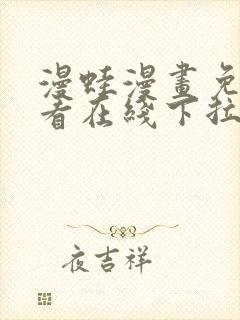 漫蛙漫畫免
看在綫下拉
夜吉祥